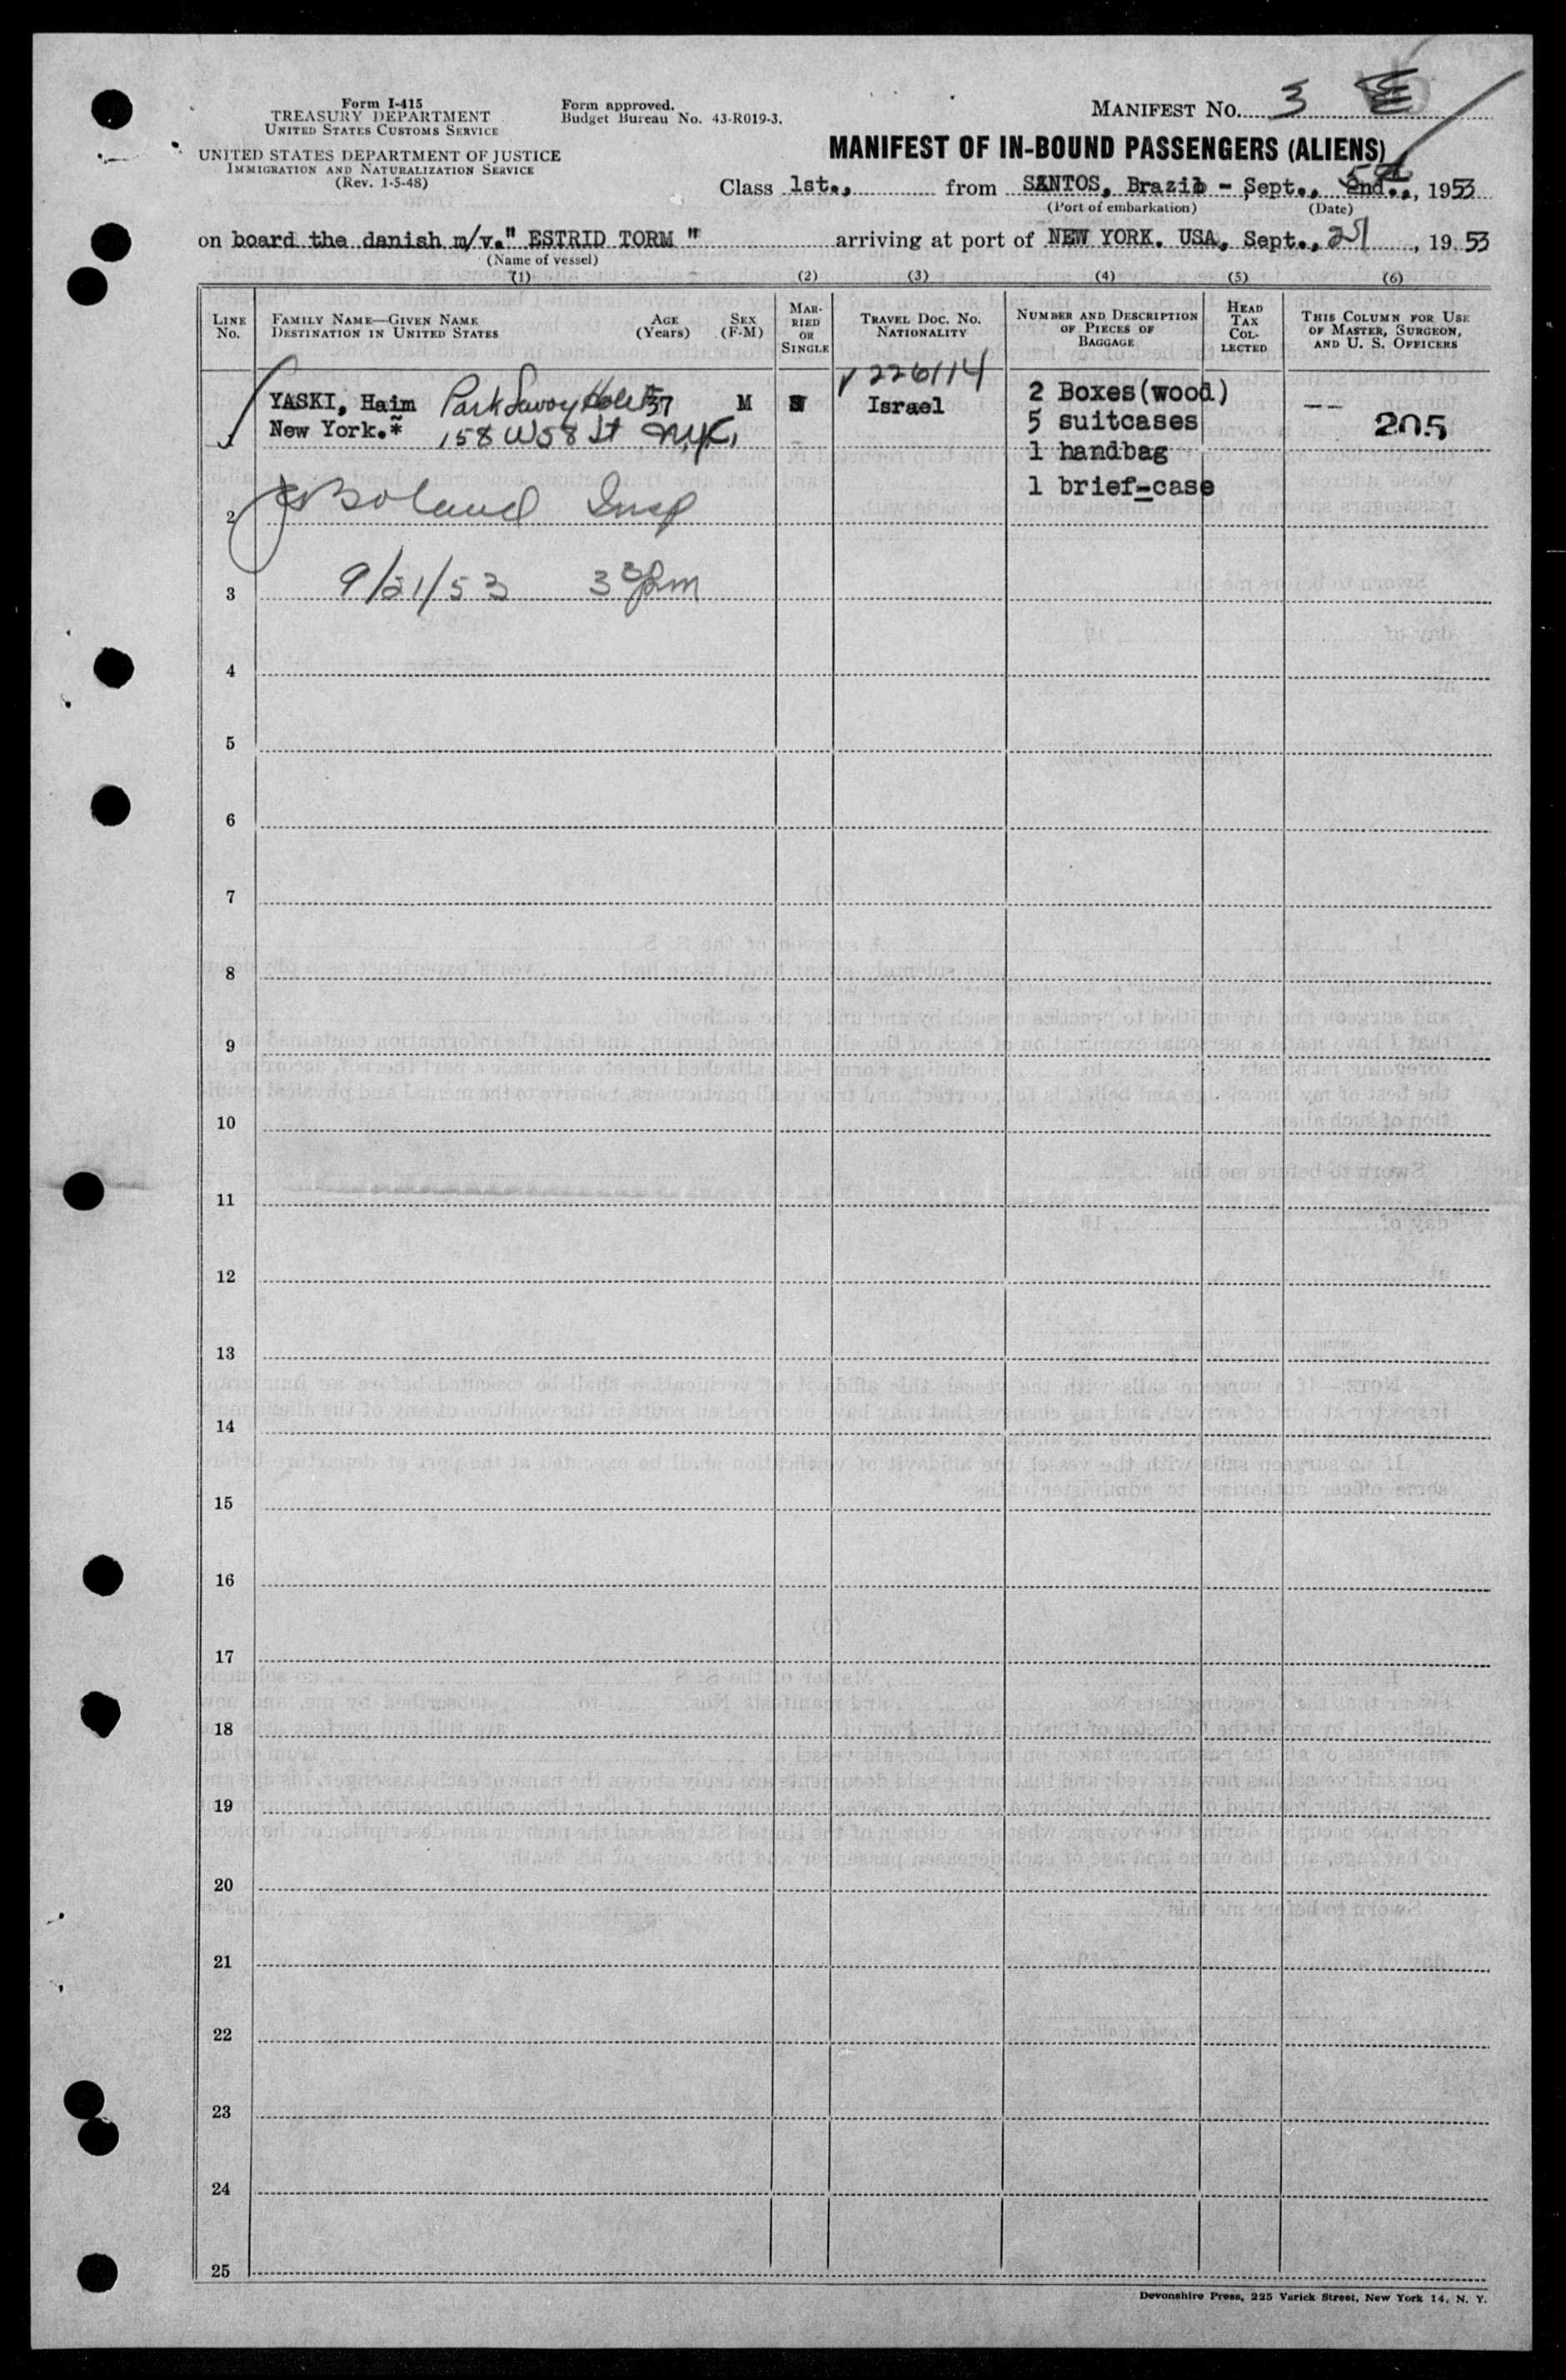 Form I-415
TREASURY DEPARTMENT
UNITED STATES CUSTOMS SERVICE
UNITED STATES DEPARTMENT OF JUSTICE
IMMIGRATION AND NATURALIZATION SERVICE
(Rev. 1-5-48)
Form approved.
Budget Bureau No. 43-R019-3.
MANIFEST No. 3
MANIFEST OF IN-BOUND PASSENGERS (ALIENS)
Class 1st., from SANTOS, Brazil - Sept., 1953
(Port of embarkation) (Date)
on board the danish m/v." ESTRID TORM " arriving at port of NEW YORK. USA, Sept., 21, 1953
(Name of vessel)
(1) (2) (3) (4) (5) (6)
LINE No.
FAMILY NAME—GIVEN NAME
DESTINATION IN UNITED STATES
AGE (Years)
SEX (F-M)
MARRIED OR SINGLE
TRAVEL DOC. NO.
NATIONALITY
NUMBER AND DESCRIPTION OF PIECES OF BAGGAGE
HEAD TAX COLLECTED
THIS COLUMN FOR USE OF MASTER, SURGEON, AND U. S. OFFICERS
YASKI, Haim Park Savoy Hotel 37 M
V 226114
Israel
2 Boxes(wood)
-- 205
New York.* 158 W 58 St N.Y.C.
5 suitcases
1 handbag
1 brief-case
2 Boland Insp
3 9/21/53 3 30 pm
4
5
6
7
8
9
10
11
12
13
14
15
16
17
18
19
20
21
22
23
24
25
Devonshire Press, 225 Varick Street, New York 14, N. Y.